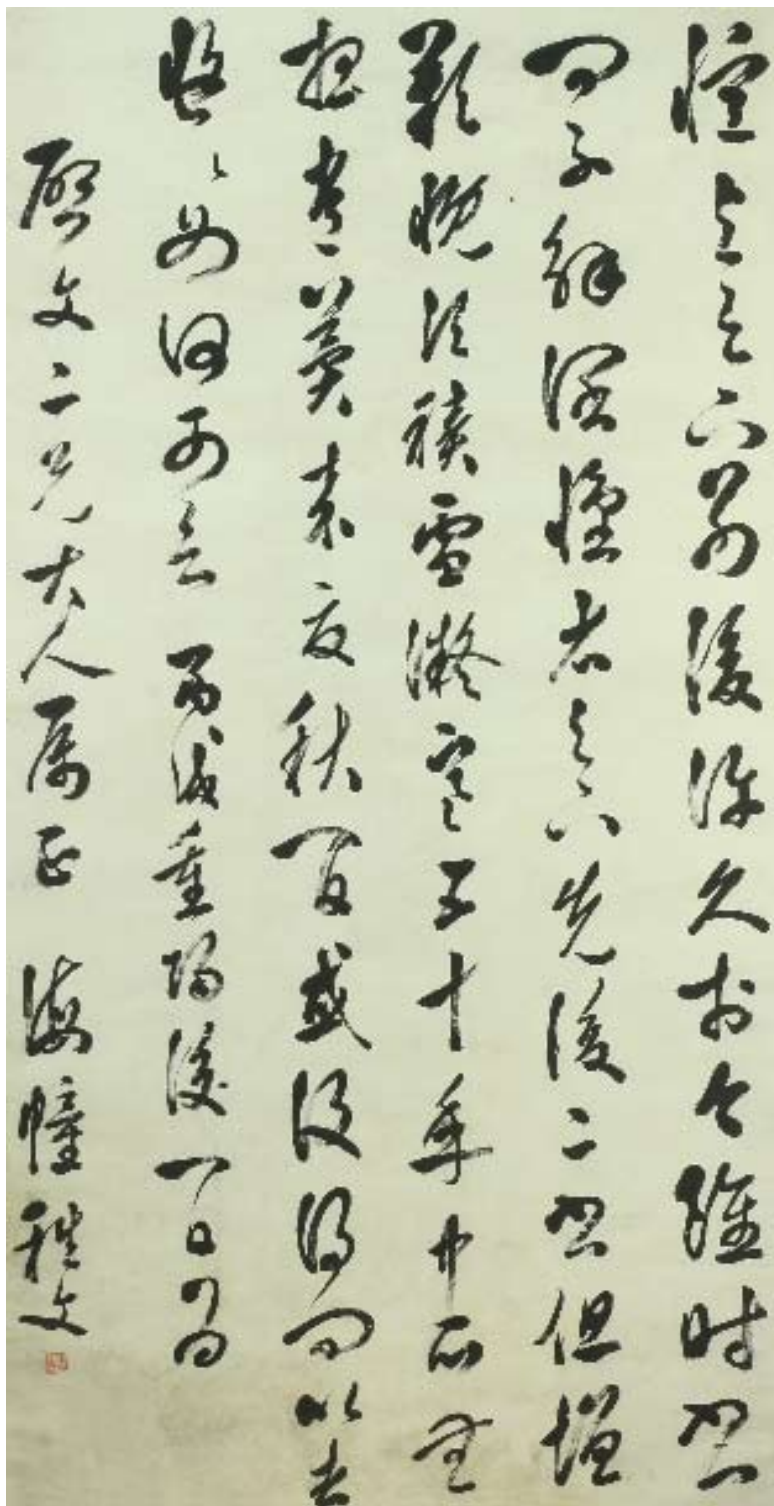 憶足下別後許久於今雖時書
問不解闊懷省足下先後二書但增
歎慨頃積雪凝寒五十年中所無
想常冀來夏秋間或復得問比者
悠悠如何可言 丙戌重陽後一日為
文二兄大人屬正 海幢